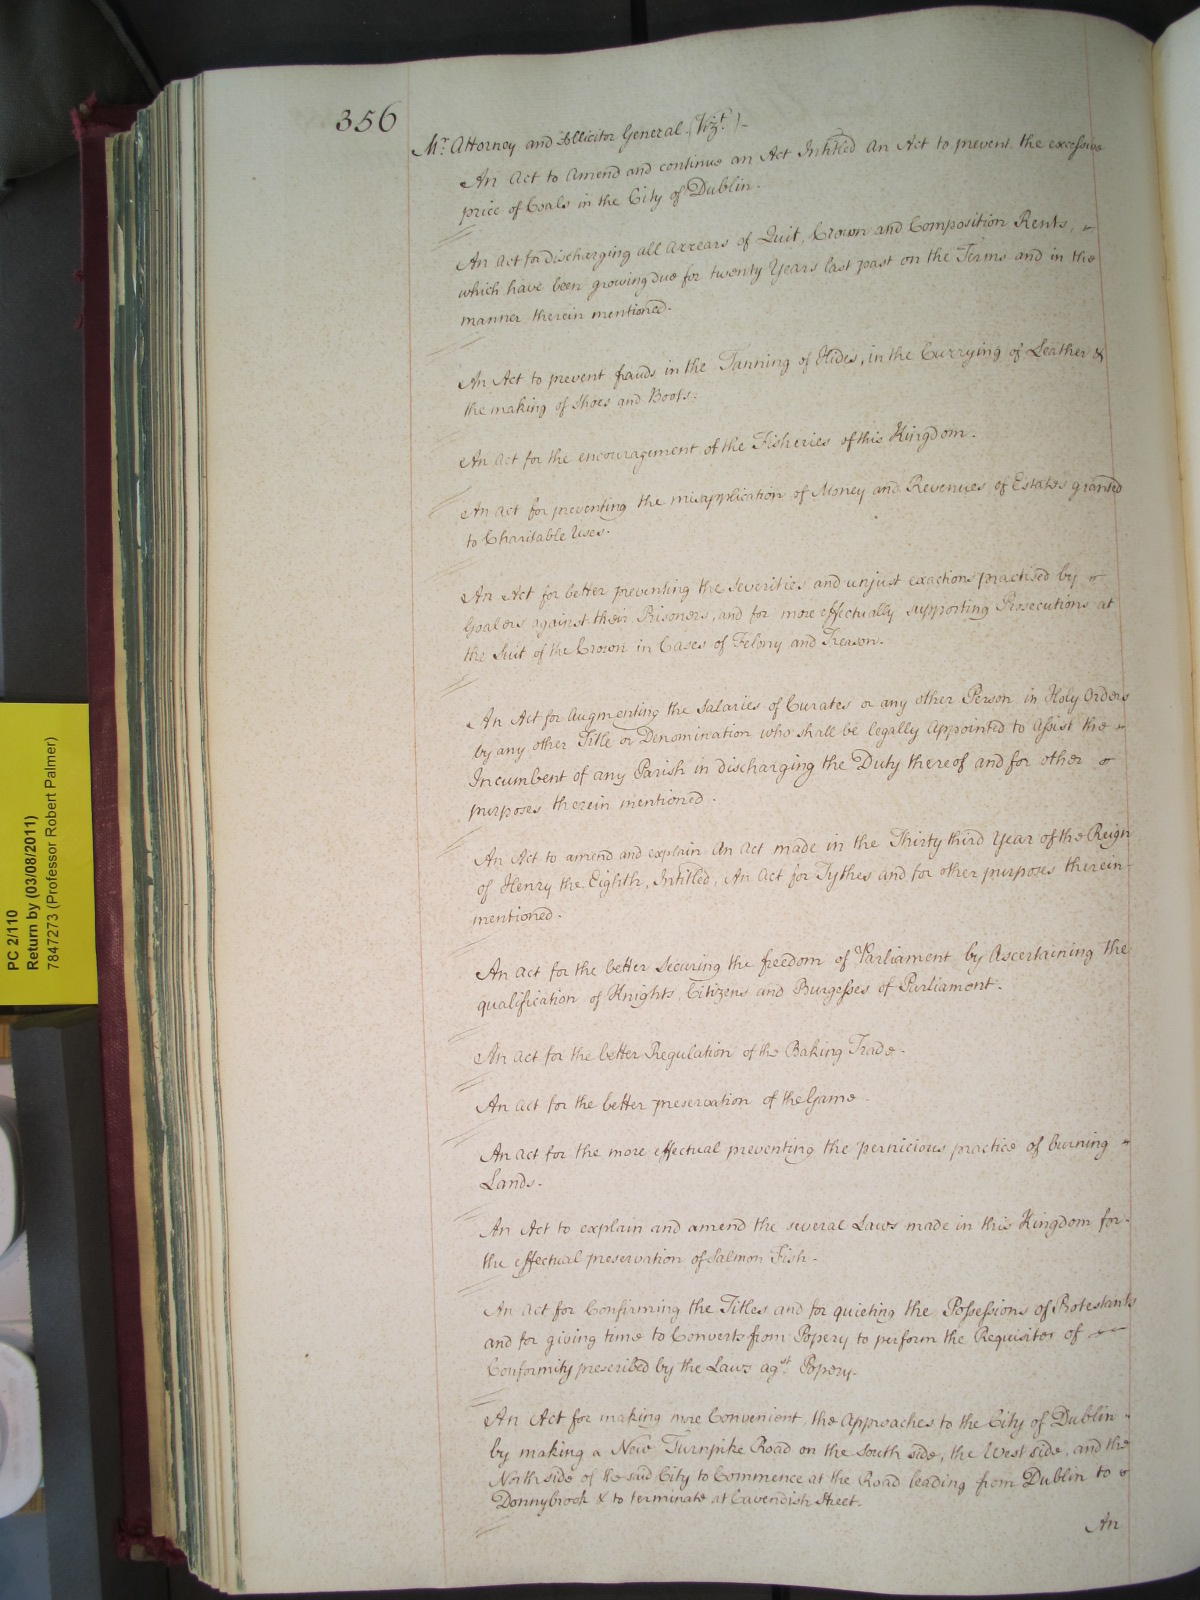 356
Mr. Attorney and Sollicitor General (Vizt.)-
An Act to Amend and continue an Act Intitled An Act to prevent the excessive
price of Coals in the City of Dublin.
An Act for discharging all Arrears of Quit, Crown and Composition Rents,
which have been growing due for twenty Years last past on the Terms and in the
manner therein mentioned.
An Act to prevent frauds in the Tanning of Hides, in the Currying of Leather &
the making of Shoes and Boots.
An Act for the encouragement of the Fisheries of this Kingdom.
An Act for preventing the misapplication of Money and Revenues of Estates granted
to Charitable Uses.
An Act for better preventing the severities and unjust exactions practised by
Goalers against their Prisoners, and for more effectually supporting Prosecutions at
the Suit of the Crown in Cases of Felony and Treason.
An Act for Augmenting the Salaries of Curates or any other Person in Holy Orders
by any other Title or Denomination who shall be legally Appointed to Assist the
Incumbent of any Parish in discharging the Duty thereof and for other
purposes therein mentioned.
An Act to amend and explain An Act made in the Thirty third Year of the Reign
of Henry the Eighth, Intitled, An Act for Tythes and for other purposes therein
mentioned.
An Act for the better Securing the freedom of Parliament by Ascertaining the
qualification of Knights, Citizens and Burgesses of Parliament.
An Act for the better Regulation of the Baking Trade.
An Act for the better preservation of the Game
An Act for the more effectual preventing the pernicious practice of burning
Lands.
An Act to explain and amend the several Laws made in this Kingdom for
the effectual preservation of Salmon Fish.
An Act for Confirming the Titles and for quieting the Possessions of Protestants
and for giving time to Converts from Popery to perform the Requisites of
Conformity prescribed by the Laws agst. Popery.
An Act for making more Convenient the Approaches to the City of Dublin
by making a New Turnpike Road on the South side, the West side, and the
North side of the said City to Commence at the Road leading from Dublin to
Donnybrook & to terminate at Cavendish Street.
An
PC 2/110
Return by (03/08/2011)
7847273 (Professor Robert Palmer)